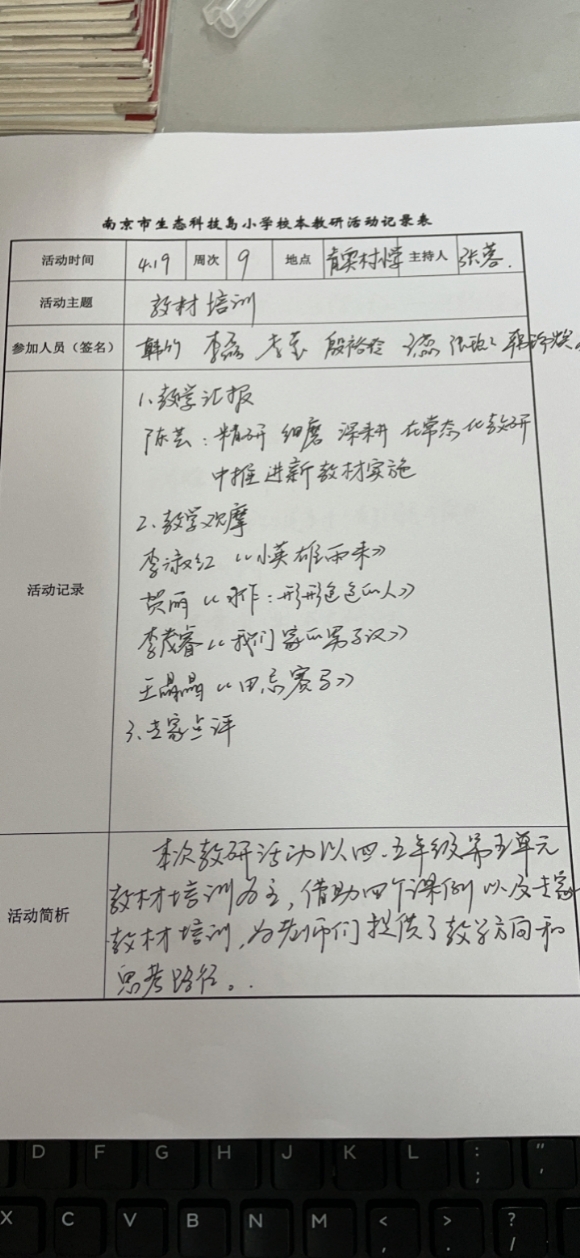 南京市生态科技岛小学校本教研活动记录表
活动时间 4.19 周次 9 地点 主持人 张蓉.
活动主题 教材培训
参加人员（签名） 韩竹 李磊 殷裕玲
活动记录
1、教学汇报
陈芸：精研 细磨 深耕 在常态化教研
中推进新教材实施
2、教学观摩
李淑红《小英雄雨来》
黄丽《习作：形形色色的人》
李茂睿《我们家的男子汉》
王晶晶《田忌赛马》
3、专家点评
活动简析
本次教研活动以四、五年级第五单元
教材培训为主，借助四个课例以及专家
教材培训，为老师们提供了教学方向和
思考路径。
D F G H J K L : ; " '
X C V B N M < , > . ? /